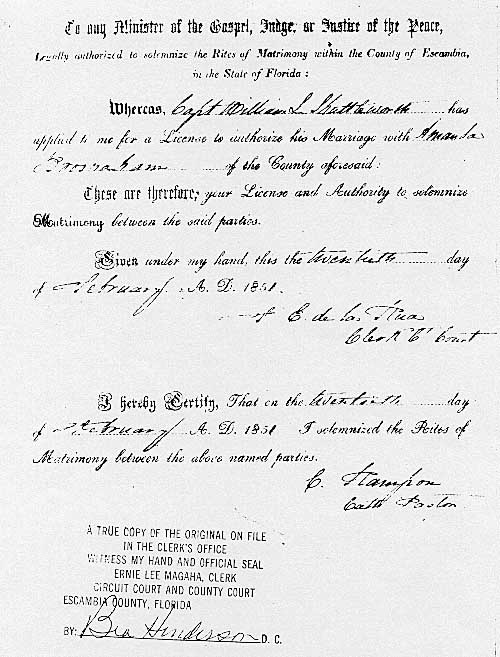 To any Minister of the Gospel, Judge, or Justice of the Peace,
Legally authorized to solemnize the Rites of Matrimony within the County of Escambia,
in the State of Florida:
Whereas, Capt William L Shuttleworth has
applied to me for a License to authorize his Marriage with Amanda
of the County aforesaid:
These are therefore, your License and Authority to solemnize
Matrimony between the said parties.
Given under my hand, this the twentieth day
of February A. D. 1851.
F. E. de la Rua
Clerk C Court
I hereby Certify, That on the twentieth day
of February A. D. 1851 I solemnized the Rites of
Matrimony between the above named parties.
C. Hampson
Cath Pastor
A TRUE COPY OF THE ORIGINAL ON FILE
IN THE CLERK'S OFFICE
WITNESS MY HAND AND OFFICIAL SEAL
ERNIE LEE MAGAHA, CLERK
CIRCUIT COURT AND COUNTY COURT
ESCAMBIA COUNTY, FLORIDA
BY: Bea Henderson D. C.